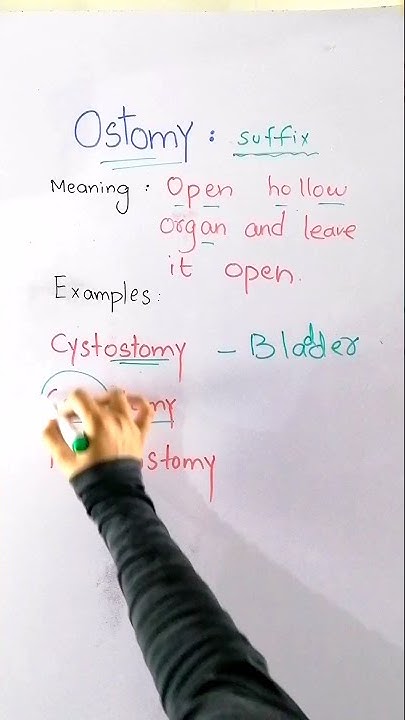 Ostomy : suffix
Meaning : Open hollow
organ and leave
it open.
Examples:
Cystostomy - Bladder